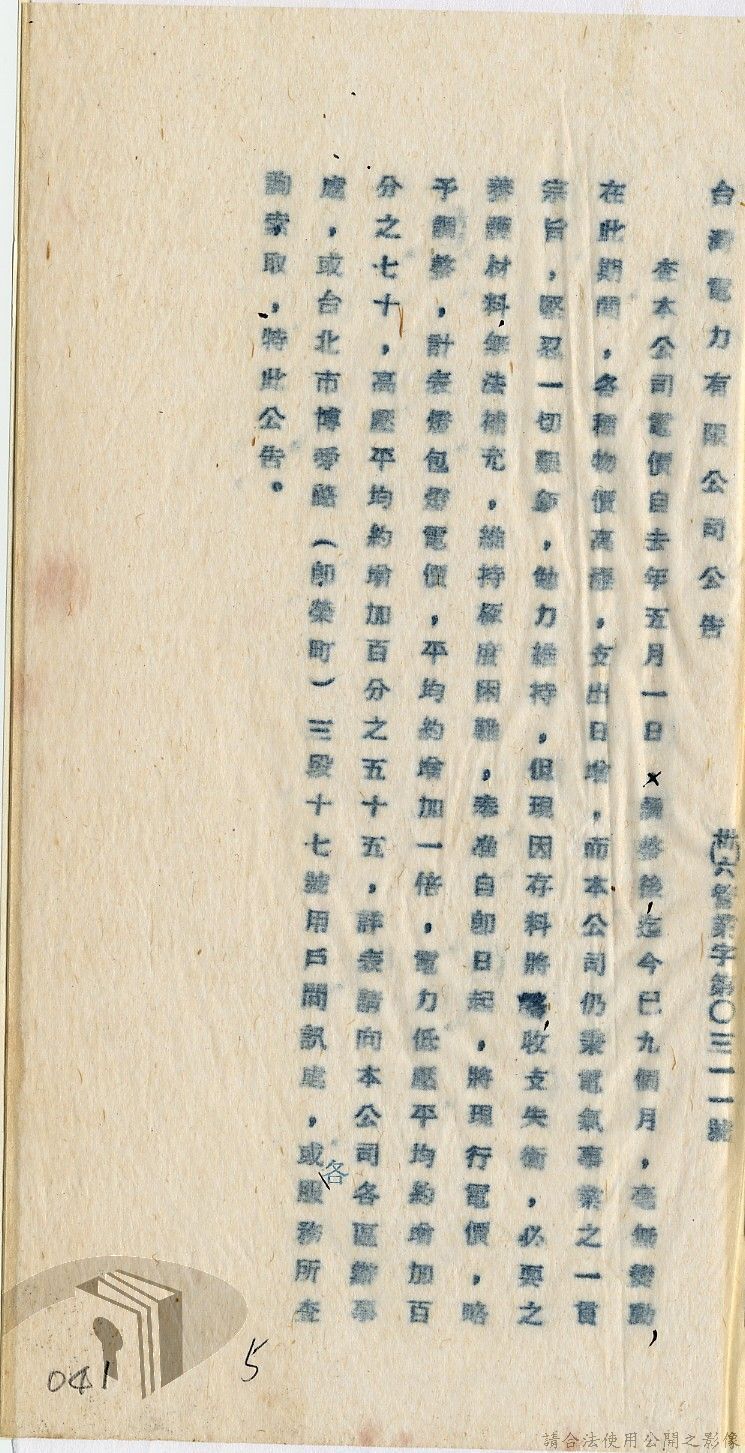 台灣電力有限公司公告
卅六管業字第〇三一一號
查本公司電價自去年五月一日調整後迄今已九個月，毫無變動，
在此期間，各種物價高漲，支出日增，而本公司仍秉電氣事業之一貫
宗旨，堅忍一切艱鉅，勉力維持，但現因存料將罄收支失衡，必要之
養護材料無法補充，維持極度困難，奉准自即日起，將現行電價，略
予調整，計表燈包燈電價，平均約增加一倍，電力低壓平均約增加百
分之七十，高壓平均約增加百分之五十五，詳表請向本公司各區辦事
處，或台北市博愛路（即榮町）三段十七號用戶問訊處，或各服務所查
詢索取，特此公告。
041
5
請合法使用公開之影像